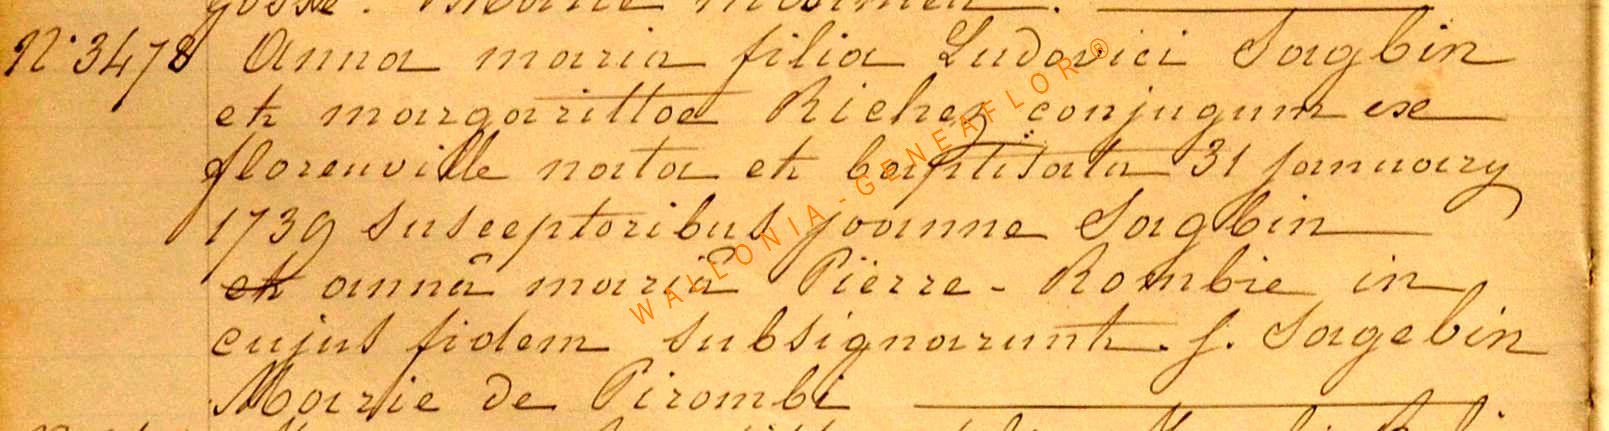 N° 3478 Anna maria filia Ludovici Sagbin
et margarittae Richez conjugum ex
florenville nata et baptisata 31 january
1739 susceptoribus joanne Sagbin
et annâ mariâ Pierre-Rombie in
cujus fidem subsignarunt. J. Sagebin
Marie de Pirombi
WALLONIA-GENEAFLOR®